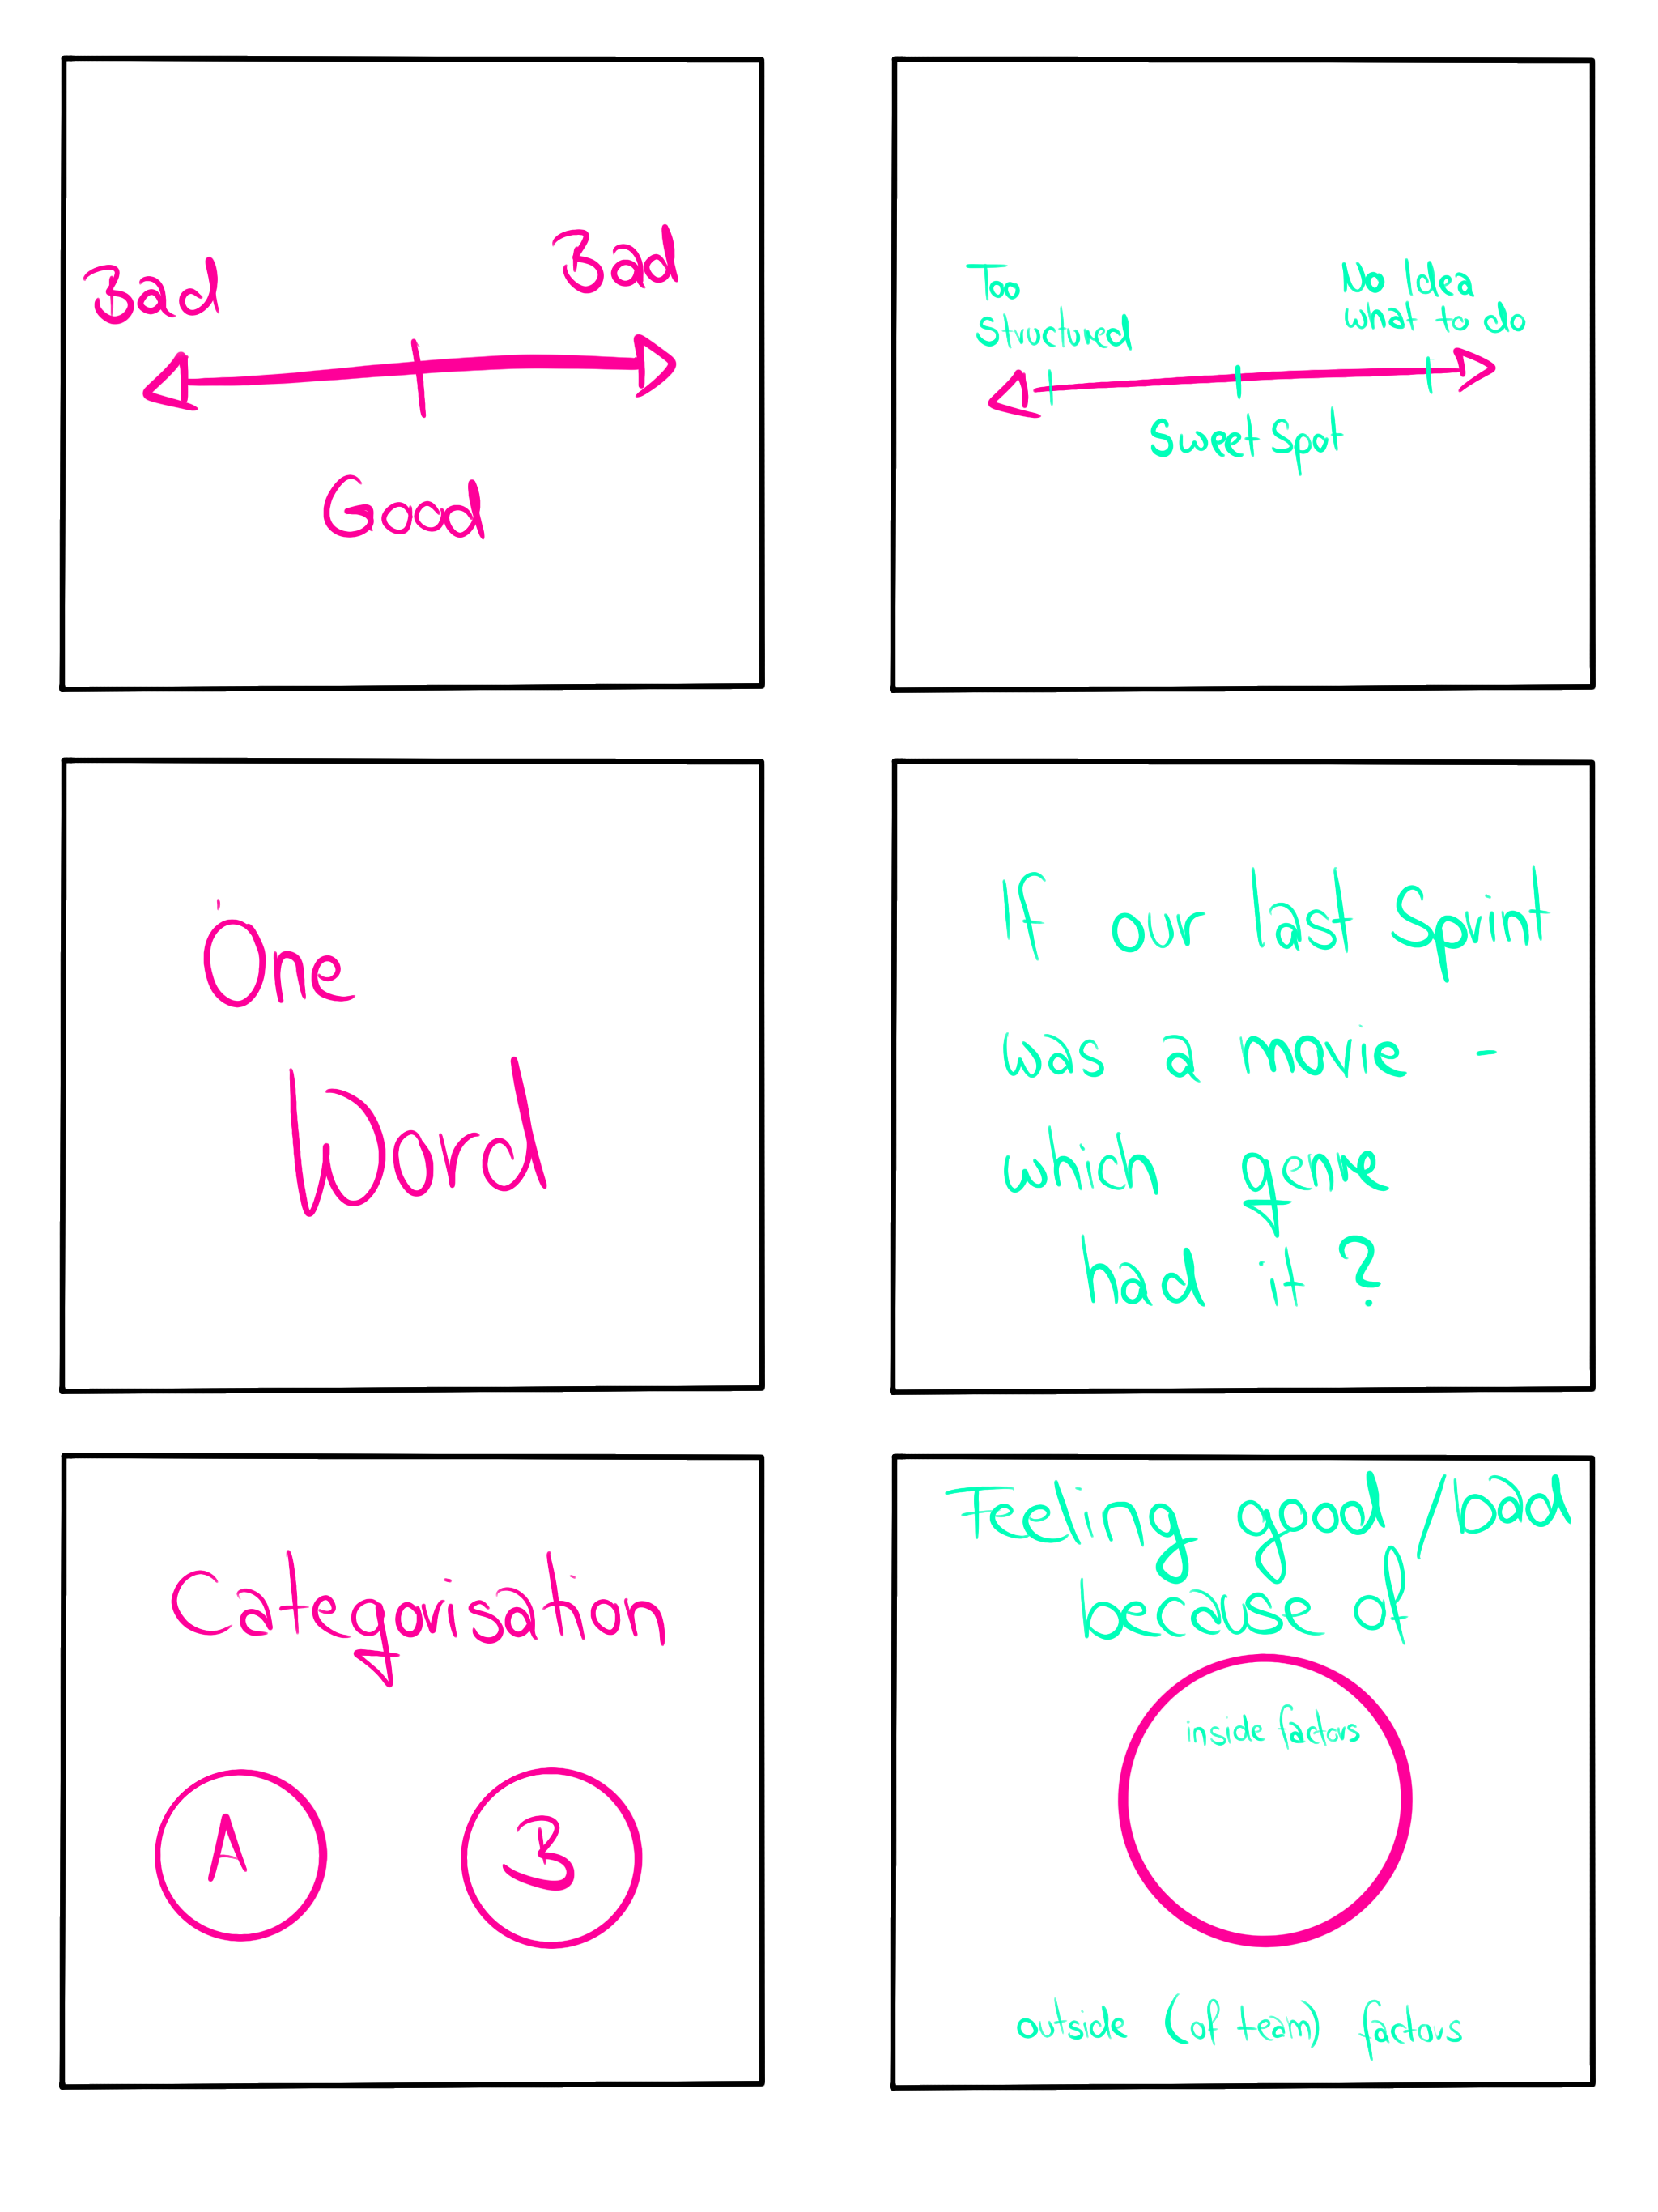 Bad
Bad
Good
Too
structured
No Idea
what to do
Sweet Spot
One
Word
If our last Sprint
was a movie -
which genre
had it ?
Categorisation
A
B
Feeling good / bad
because of
inside factors
outside (of team) factors